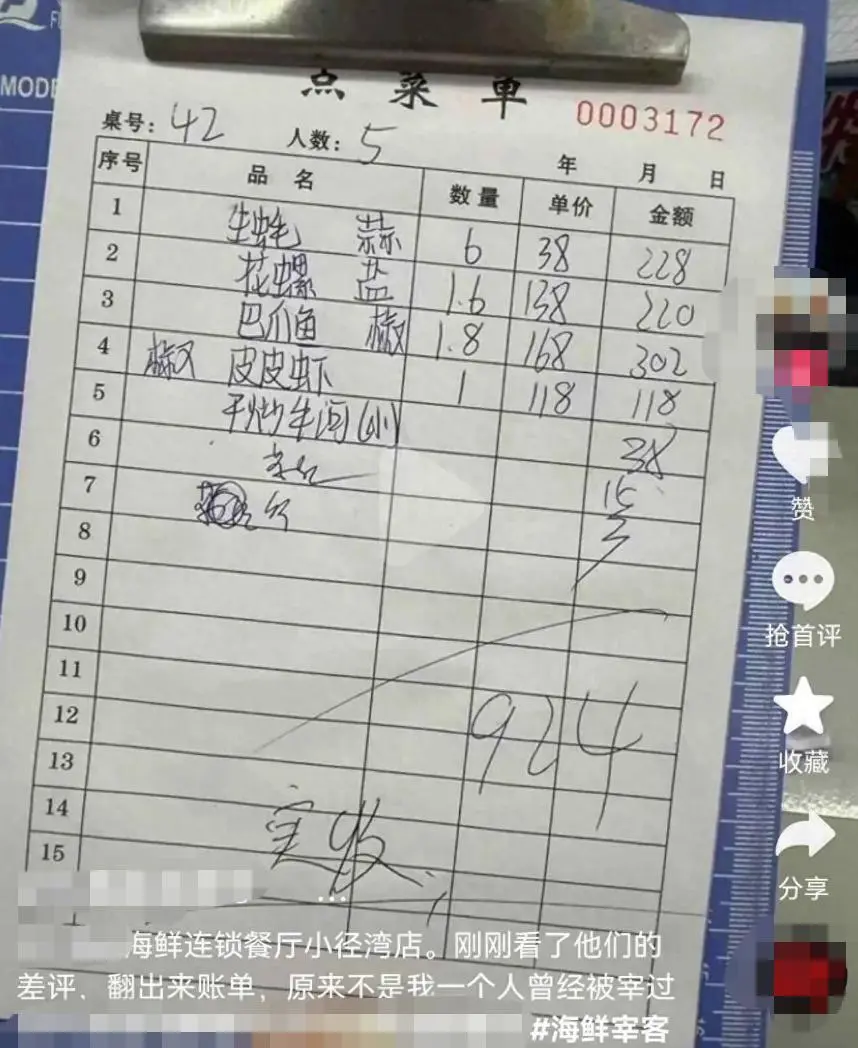 MODE
点菜单
0003172
桌号: 42 人数: 5
年 月 日
序号 品名 数量 单价 金额
1 生蚝 蒜 6 38 228
2 花螺 盐 1.6 138 220
3 巴爪鱼 椒 1.8 168 302
4 椒 皮皮虾 1 118 118
5 干炒牛河(小) 38
6 15
7 3
8
9
10
11
12 924
13
14
15
实收
赞
抢首评
收藏
分享
海鲜连锁餐厅小径湾店。刚刚看了他们的
差评、翻出来账单，原来不是我一个人曾经被宰过
#海鲜宰客